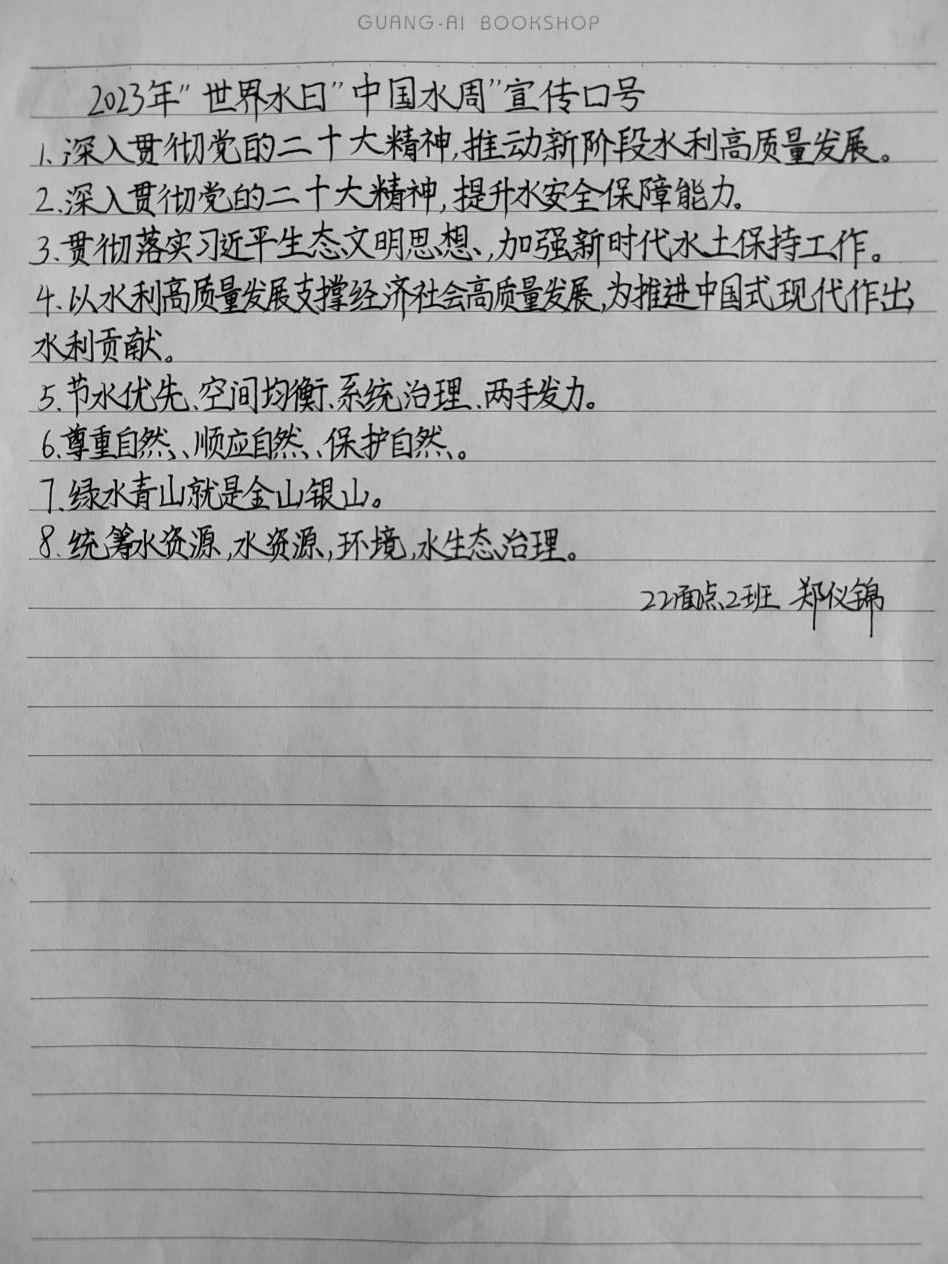 GUANG-AI BOOKSHOP
2023年"世界水日"中国水周"宣传口号
1.深入贯彻党的二十大精神,推动新阶段水利高质量发展。
2.深入贯彻党的二十大精神,提升水安全保障能力。
3.贯彻落实习近平生态文明思想,加强新时代水土保持工作。
4.以水利高质量发展支撑经济社会高质量发展,为推进中国式现代作出
水利贡献。
5.节水优先、空间均衡、系统治理、两手发力。
6.尊重自然、顺应自然、保护自然。
7.绿水青山就是金山银山。
8.统筹水资源,水资源,环境,水生态治理。
22面点2班 郑仪锦